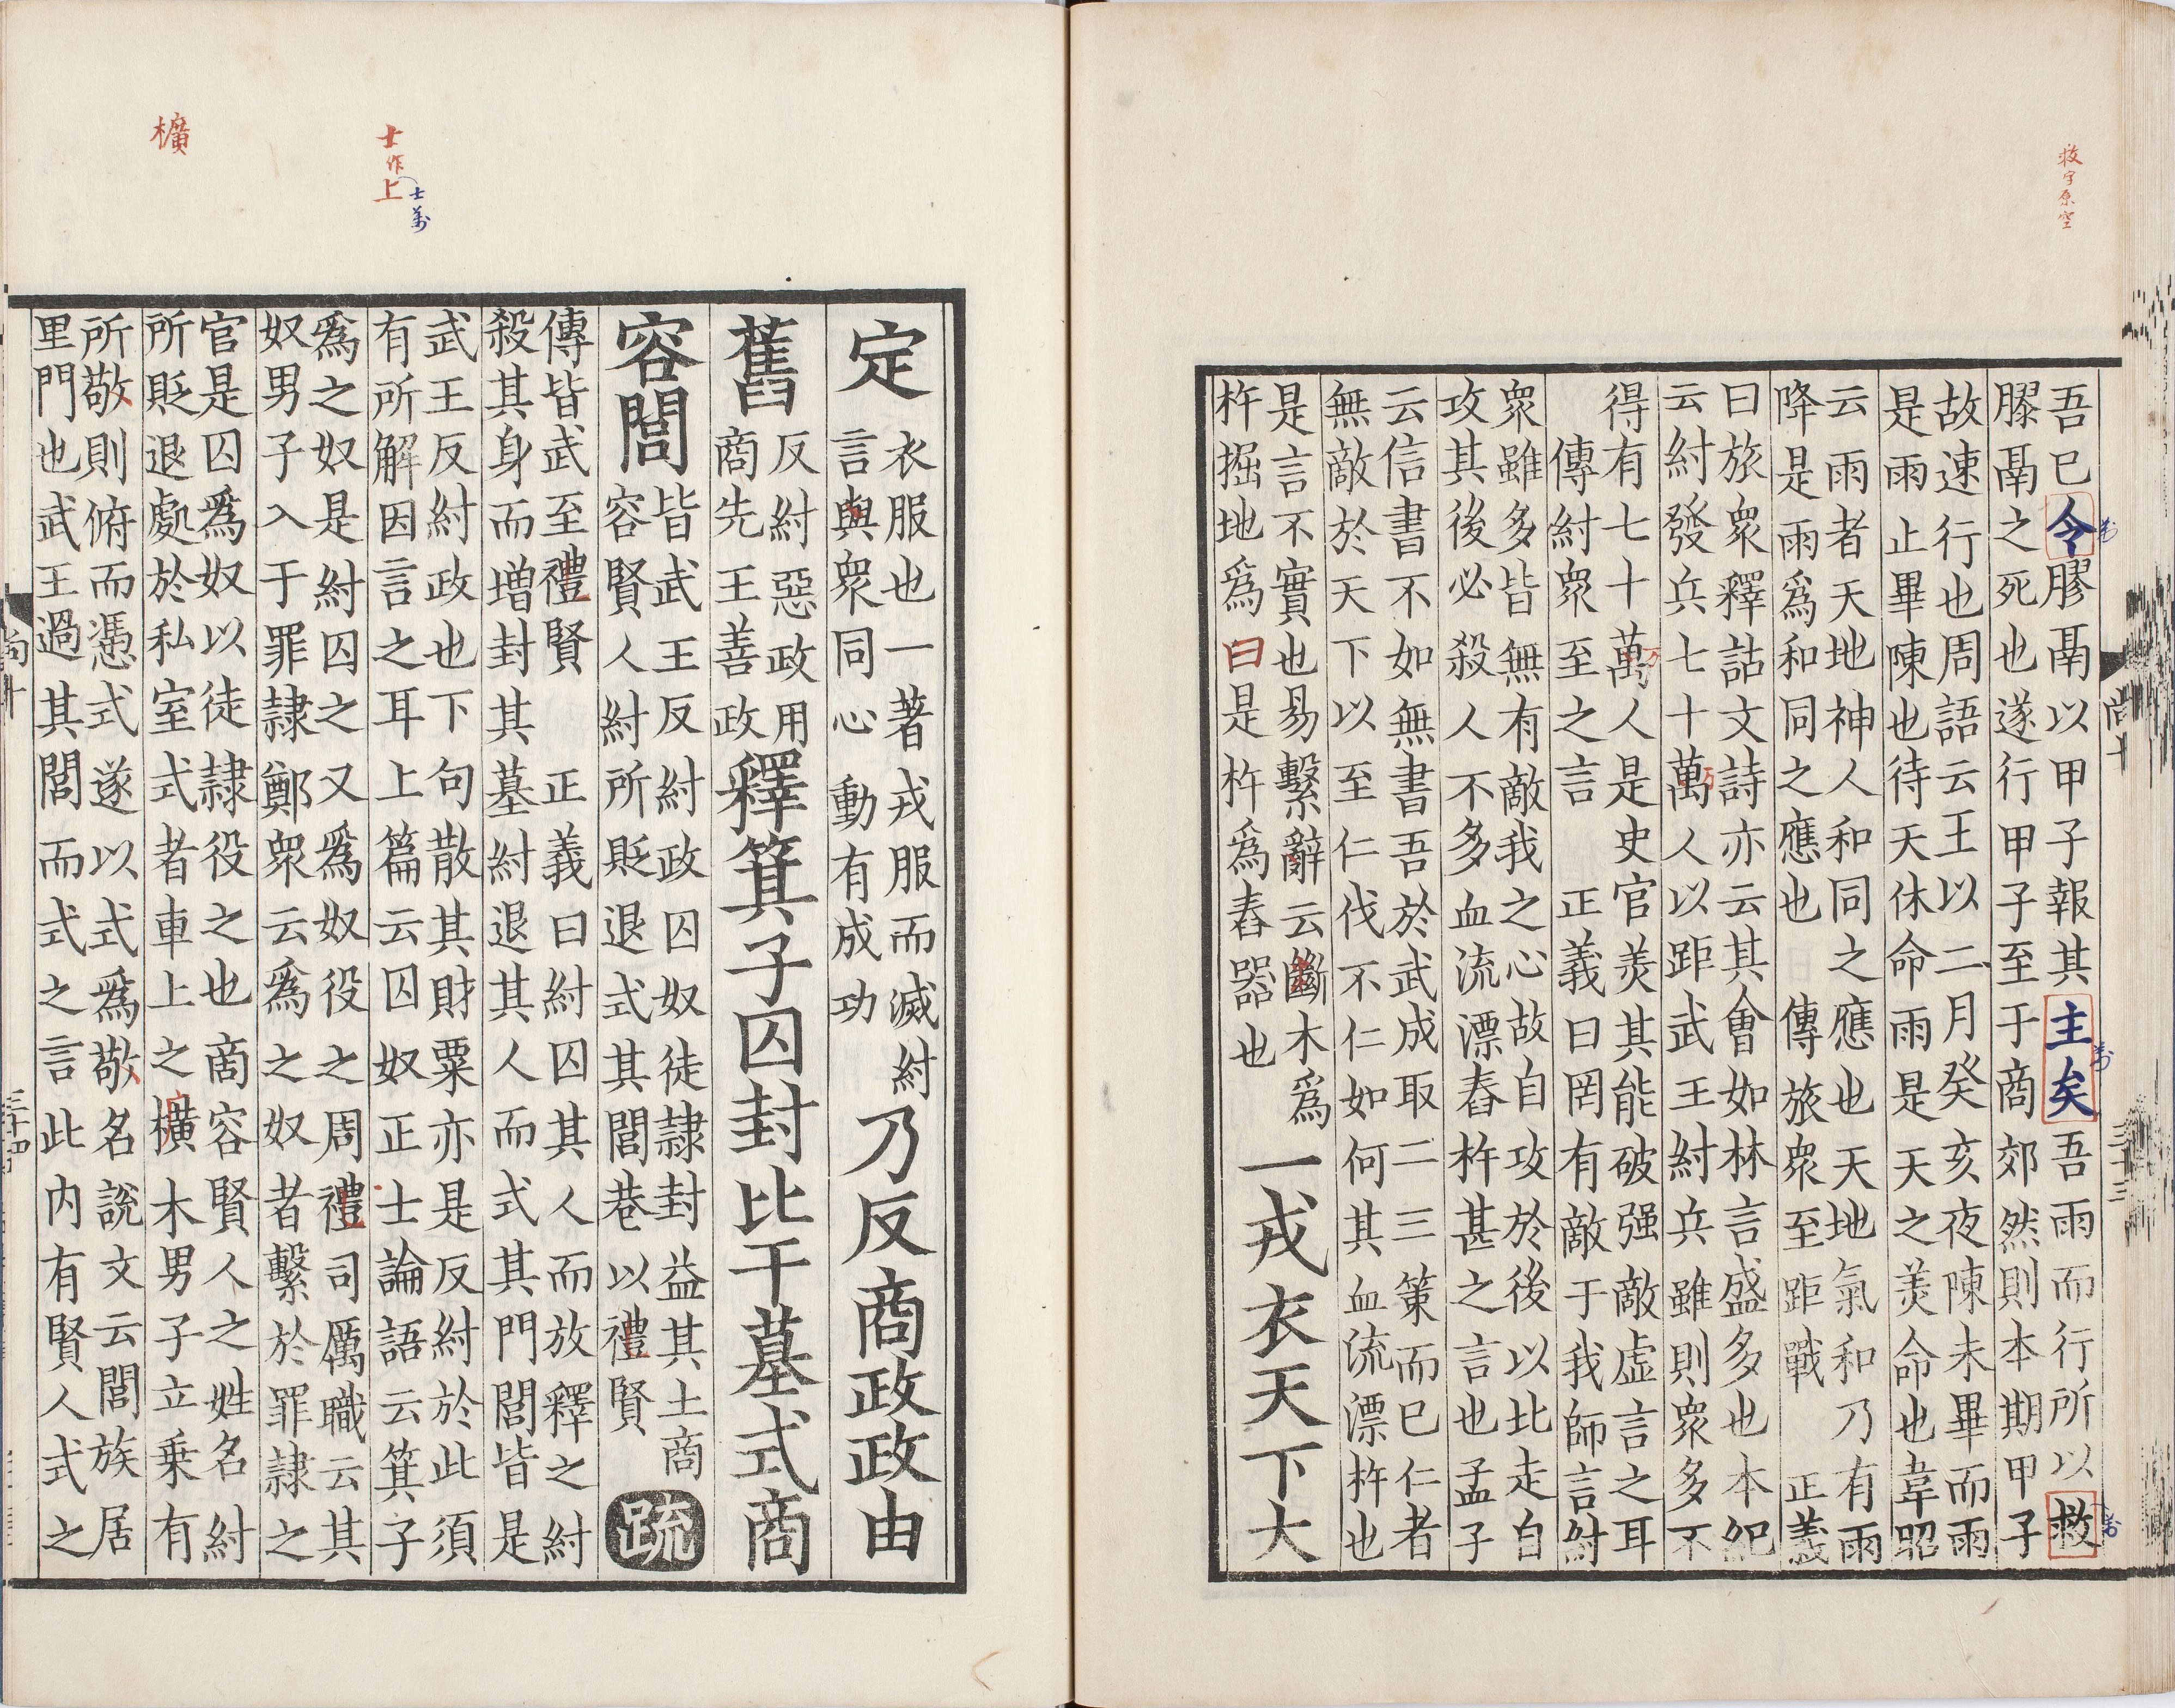 救字原空
吾已令膠鬲以甲子報其主矣吾雨而行所以救
膠鬲之死也遂行甲子至于商郊然則本期甲子
故速行也周語云王以二月癸亥夜陳未畢而雨
是雨止畢陳也待天休命雨是天之美命也韋昭
云雨者天地神人和同之應也天地氣和乃有雨
降是雨爲和同之應也 傳旅衆至距戰 正義
曰旅衆釋詁文詩亦云其會如林言盛多也本紀
云紂發兵七十萬人以距武王紂兵雖則衆多不
得有七十萬人是史官美其能破强敵虛言之耳
傳紂衆至之言 正義曰罔有敵于我師言紂
衆雖多皆無有敵我之心故自攻於後以比走自
攻其後必殺人不多血流漂舂杵甚之言也孟子
云信書不如無書吾於武成取二三策而已仁者
無敵於天下以至仁伐不仁如何其血流漂杵也
是言不實也易繫辭云斷木爲
杵掘地爲曰是杵爲舂器也
一戎衣天下大
定
衣服也一著戎服而滅紂
言與衆同心動有成功
乃反商政政由
舊
反紂惡政用
商先王善政
釋箕子囚封比干墓式商
容閭
皆武王反紂政囚奴徒隸封益其土商
容賢人紂所貶退式其閭巷以禮賢
疏
傳皆武至禮賢 正義曰紂囚其人而放釋之紂
殺其身而增封其墓紂退其人而式其門閭皆是
武王反紂政也下句散其財粟亦是反紂於此須
有所解因言之耳上篇云囚奴正士論語云箕子
爲之奴是紂囚之又爲奴役之周禮司厲職云其
奴男子入于罪隸鄭衆云爲之奴者繫於罪隸之
官是囚爲奴以徒隸役之也商容賢人之姓名紂
所貶退處於私室式者車上之橫木男子立乗有
所敬則俯而憑式遂以式爲敬名說文云閭族居
里門也武王過其閭而式之言此内有賢人式之
士作上
士萬
櫎